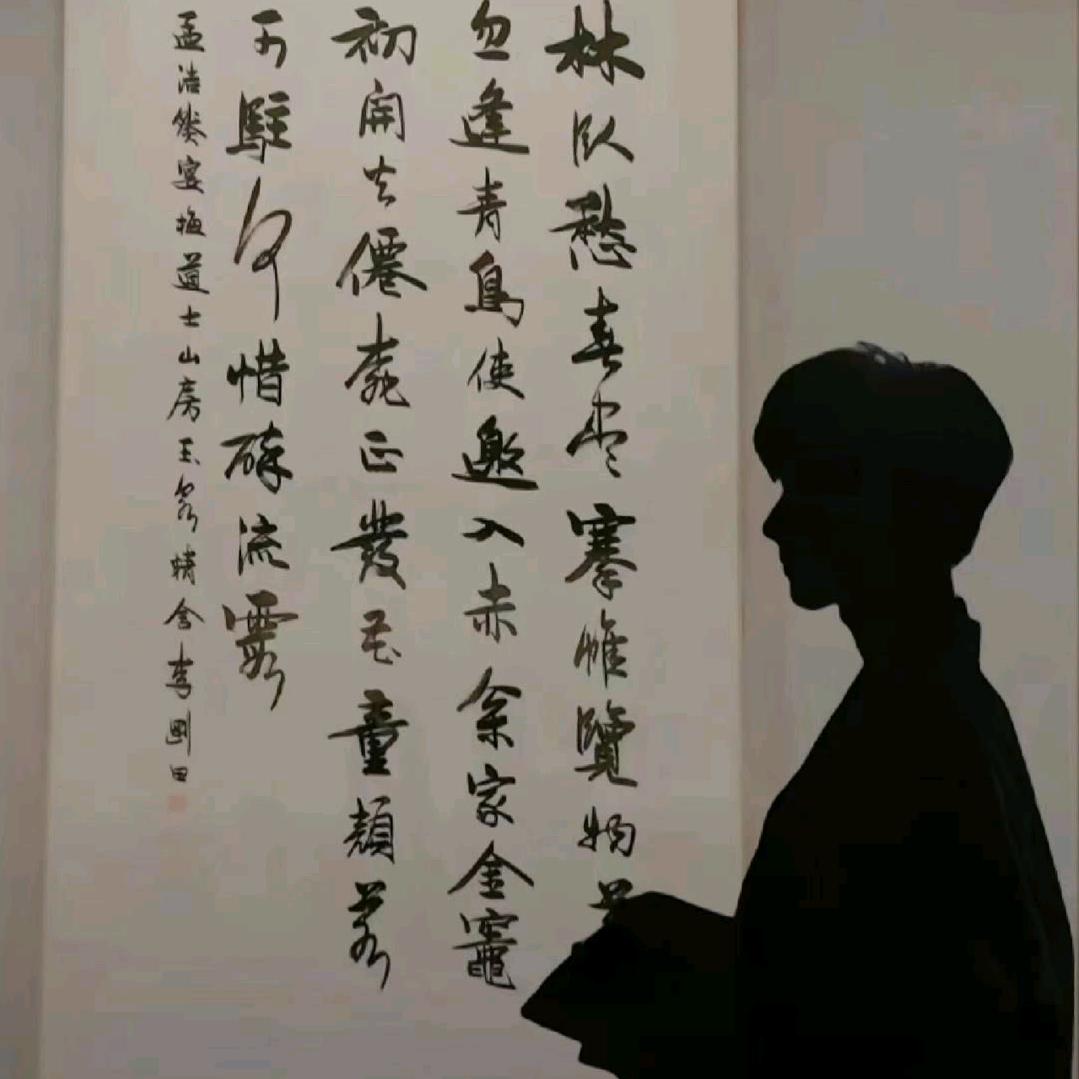 林臥愁春盡搴帷覽物
忽逢青鳥使邀入赤枀家金竈
初開火僊桃正發花童顏若
可駐何惜醉流霞
孟浩然宴梅道士山房玉泉精舍李剛田